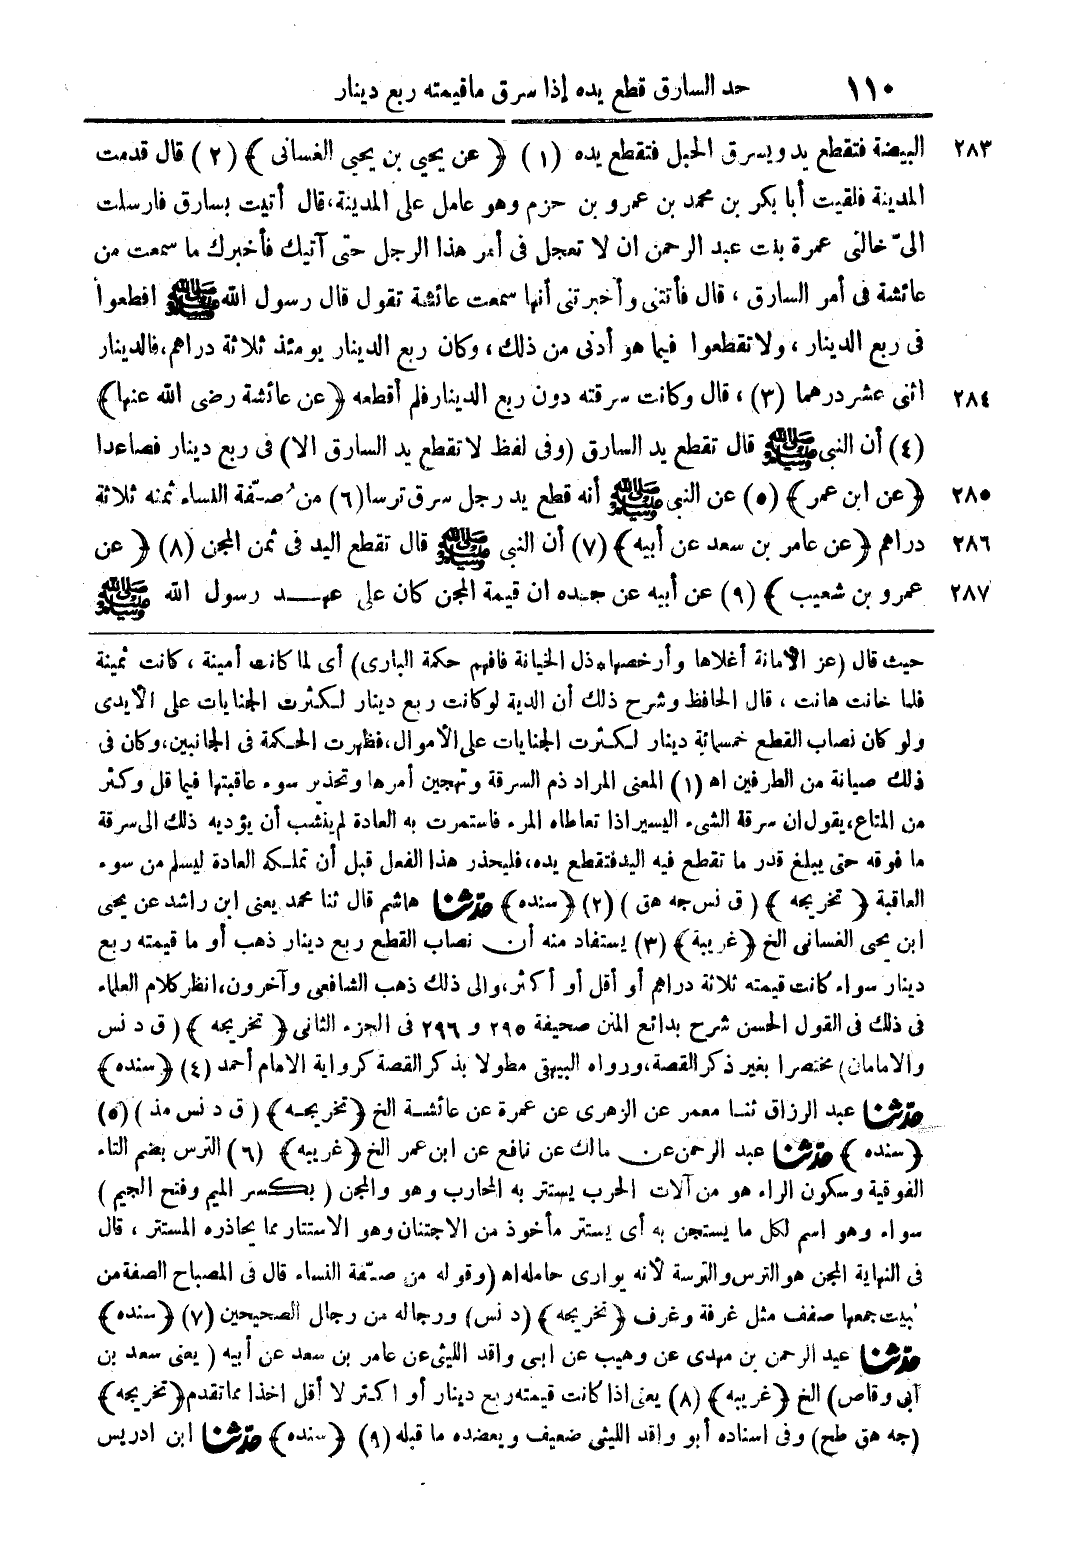 ١١٠ حد السارق قطع يده إذا سرق ماقيمته ربع دينار
٢٨٣ البيضة فتقطع يد ويسرق الحبل فتقطع يده (١) ﴿ عن يحيى بن يحيى الغسانى ﴾ (٢) قال قدمت
المدينة فلقيت أبا بكر بن محمد بن عمرو بن حزم وهو عامل على المدينة، قال أتيت بسارق فارسلت
الىّ خالتى عمرة بنت عبد الرحمن ان لا تعجل فى أمر هذا الرجل حتى آتيك فأخبرك ما سمعت من
عائشة فى أمر السارق ، قال فأتتنى وأخبرتنى أنها سمعت عائشة تقول قال رسول الله ﷺ اقطعوا
فى ربع الدينار ، ولا تقطعوا فيما هو أدنى من ذلك ، وكان ربع الدينار يومئذ ثلاثة دراهم، فالدينار
٢٨٤ اثنى عشر درهما (٣) ، قال وكانت سرقته دون ربع الدينار فلم أقطعه ﴿ عن عائشة رضى الله عنها ﴾
(٤) أن النبى ﷺ قال تقطع يد السارق (وفى لفظ لا تقطع يد السارق الا) فى ربع دينار فصاعدا
٢٨٥ ﴿ عن ابن عمر ﴾ (٥) عن النبى ﷺ أنه قطع يد رجل سرق ترسا (٦) من صُفّة النساء ثمنه ثلاثة
٢٨٦ دراهم ﴿ عن عامر بن سعد عن أبيه ﴾ (٧) أن النبى ﷺ قال تقطع اليد فى ثمن المجن (٨) ﴿ عن
٢٨٧ عمرو بن شعيب ﴾ (٩) عن أبيه عن جده ان قيمة المجن كان على عهد رسول الله ﷺ
حيث قال (عز الأمانة أغلاها وأرخصها * ذل الخيانة فافهم حكمة البارى) أى لما كانت أمينة ، كانت ثمينة
فلما خانت هانت ، قال الحافظ وشرح ذلك أن الدية لو كانت ربع دينار لكثرت الجنايات على الأيدى
ولو كان نصاب القطع خمسمائة دينار لكثرت الجنايات على الأموال، فظهرت الحكمة فى الجانبين، وكان فى
ذلك صيانة من الطرفين اه (١) المعنى المراد ذم السرقة وتهجين أمرها وتحذير سوء عاقبتها فيما قل وكثر
من المتاع، يقول ان سرقة الشىء اليسير اذا تعاطاه المرء فاستمرت به العادة لم ينشب أن يؤديه ذلك الى سرقة
ما فوقه حتى يبلغ قدر ما تقطع فيه اليد فتقطع يده، فليحذر هذا الفعل قبل أن تملكه العادة ليسلم من سوء
العاقبة ﴿ تخريجه ﴾ ( ق نس جه هق ) (٢) ﴿ سنده ﴾ حدّثنا هاشم قال ثنا محمد يعنى ابن راشد عن يحيى
ابن يحيى الغسانى الخ ﴿ غريبة ﴾ (٣) يستفاد منه أن نصاب القطع ربع دينار ذهب أو ما قيمته ربع
دينار سواء كانت قيمته ثلاثة دراهم أو أقل أو أكثر، والى ذلك ذهب الشافعى وآخرون، انظر كلام العلماء
فى ذلك فى القول الحسن شرح بدائع المنن صحيفة ٢٩٥ و ٢٩٦ فى الجزء الثانى ﴿ تخريجه ﴾ ( ق د نس
والامامان ) مختصرا بغير ذكر القصة، ورواه البيهقى مطولا بذكر القصة كرواية الامام أحمد (٤) ﴿ سنده ﴾
حدّثنا عبد الرزاق ثنا معمر عن الزهرى عن عمرة عن عائشة الخ ﴿ تخريجه ﴾ ( ق د نس مذ ) (٥)
﴿ سنده ﴾ حدّثنا عبد الرحمن عن مالك عن نافع عن ابن عمر الخ ﴿ غريبه ﴾ (٦) الترس بضم التاء
الفوقية وسكون الراء هو من آلات الحرب يستتر به المحارب وهو والمجن ( بكسر الميم وفتح الجيم )
سواء وهو اسم لكل ما يستجن به أى يستتر مأخوذ من الاجتنان وهو الاستتار مما يحاذره المستتر ، قال
فى النهاية المجن هو الترس والترسة لأنه يوارى حامله اه (وقوله من صفّة النساء قال فى المصباح الصفة من
البيت جمعها صفف مثل غرفة وغرف ﴿ تخريجه ﴾ (د نس) ورجاله من رجال الصحيحين (٧) ﴿ سنده ﴾
حدّثنا عبد الرحمن بن مهدى عن وهيب عن ابى واقد الليثى عن عامر بن سعد عن أبيه ( يعنى سعد بن
أبى وقاص) الخ ﴿ غريبه ﴾ (٨) يعنى اذا كانت قيمته ربع دينار أو اكثر لا أقل اخذا مما تقدم ﴿ تخريجه ﴾
(جه هق طح) وفى اسناده أبو واقد الليثى ضعيف ويعضده ما قبله (٩) ﴿ سنده ﴾ حدّثنا ابن ادريس